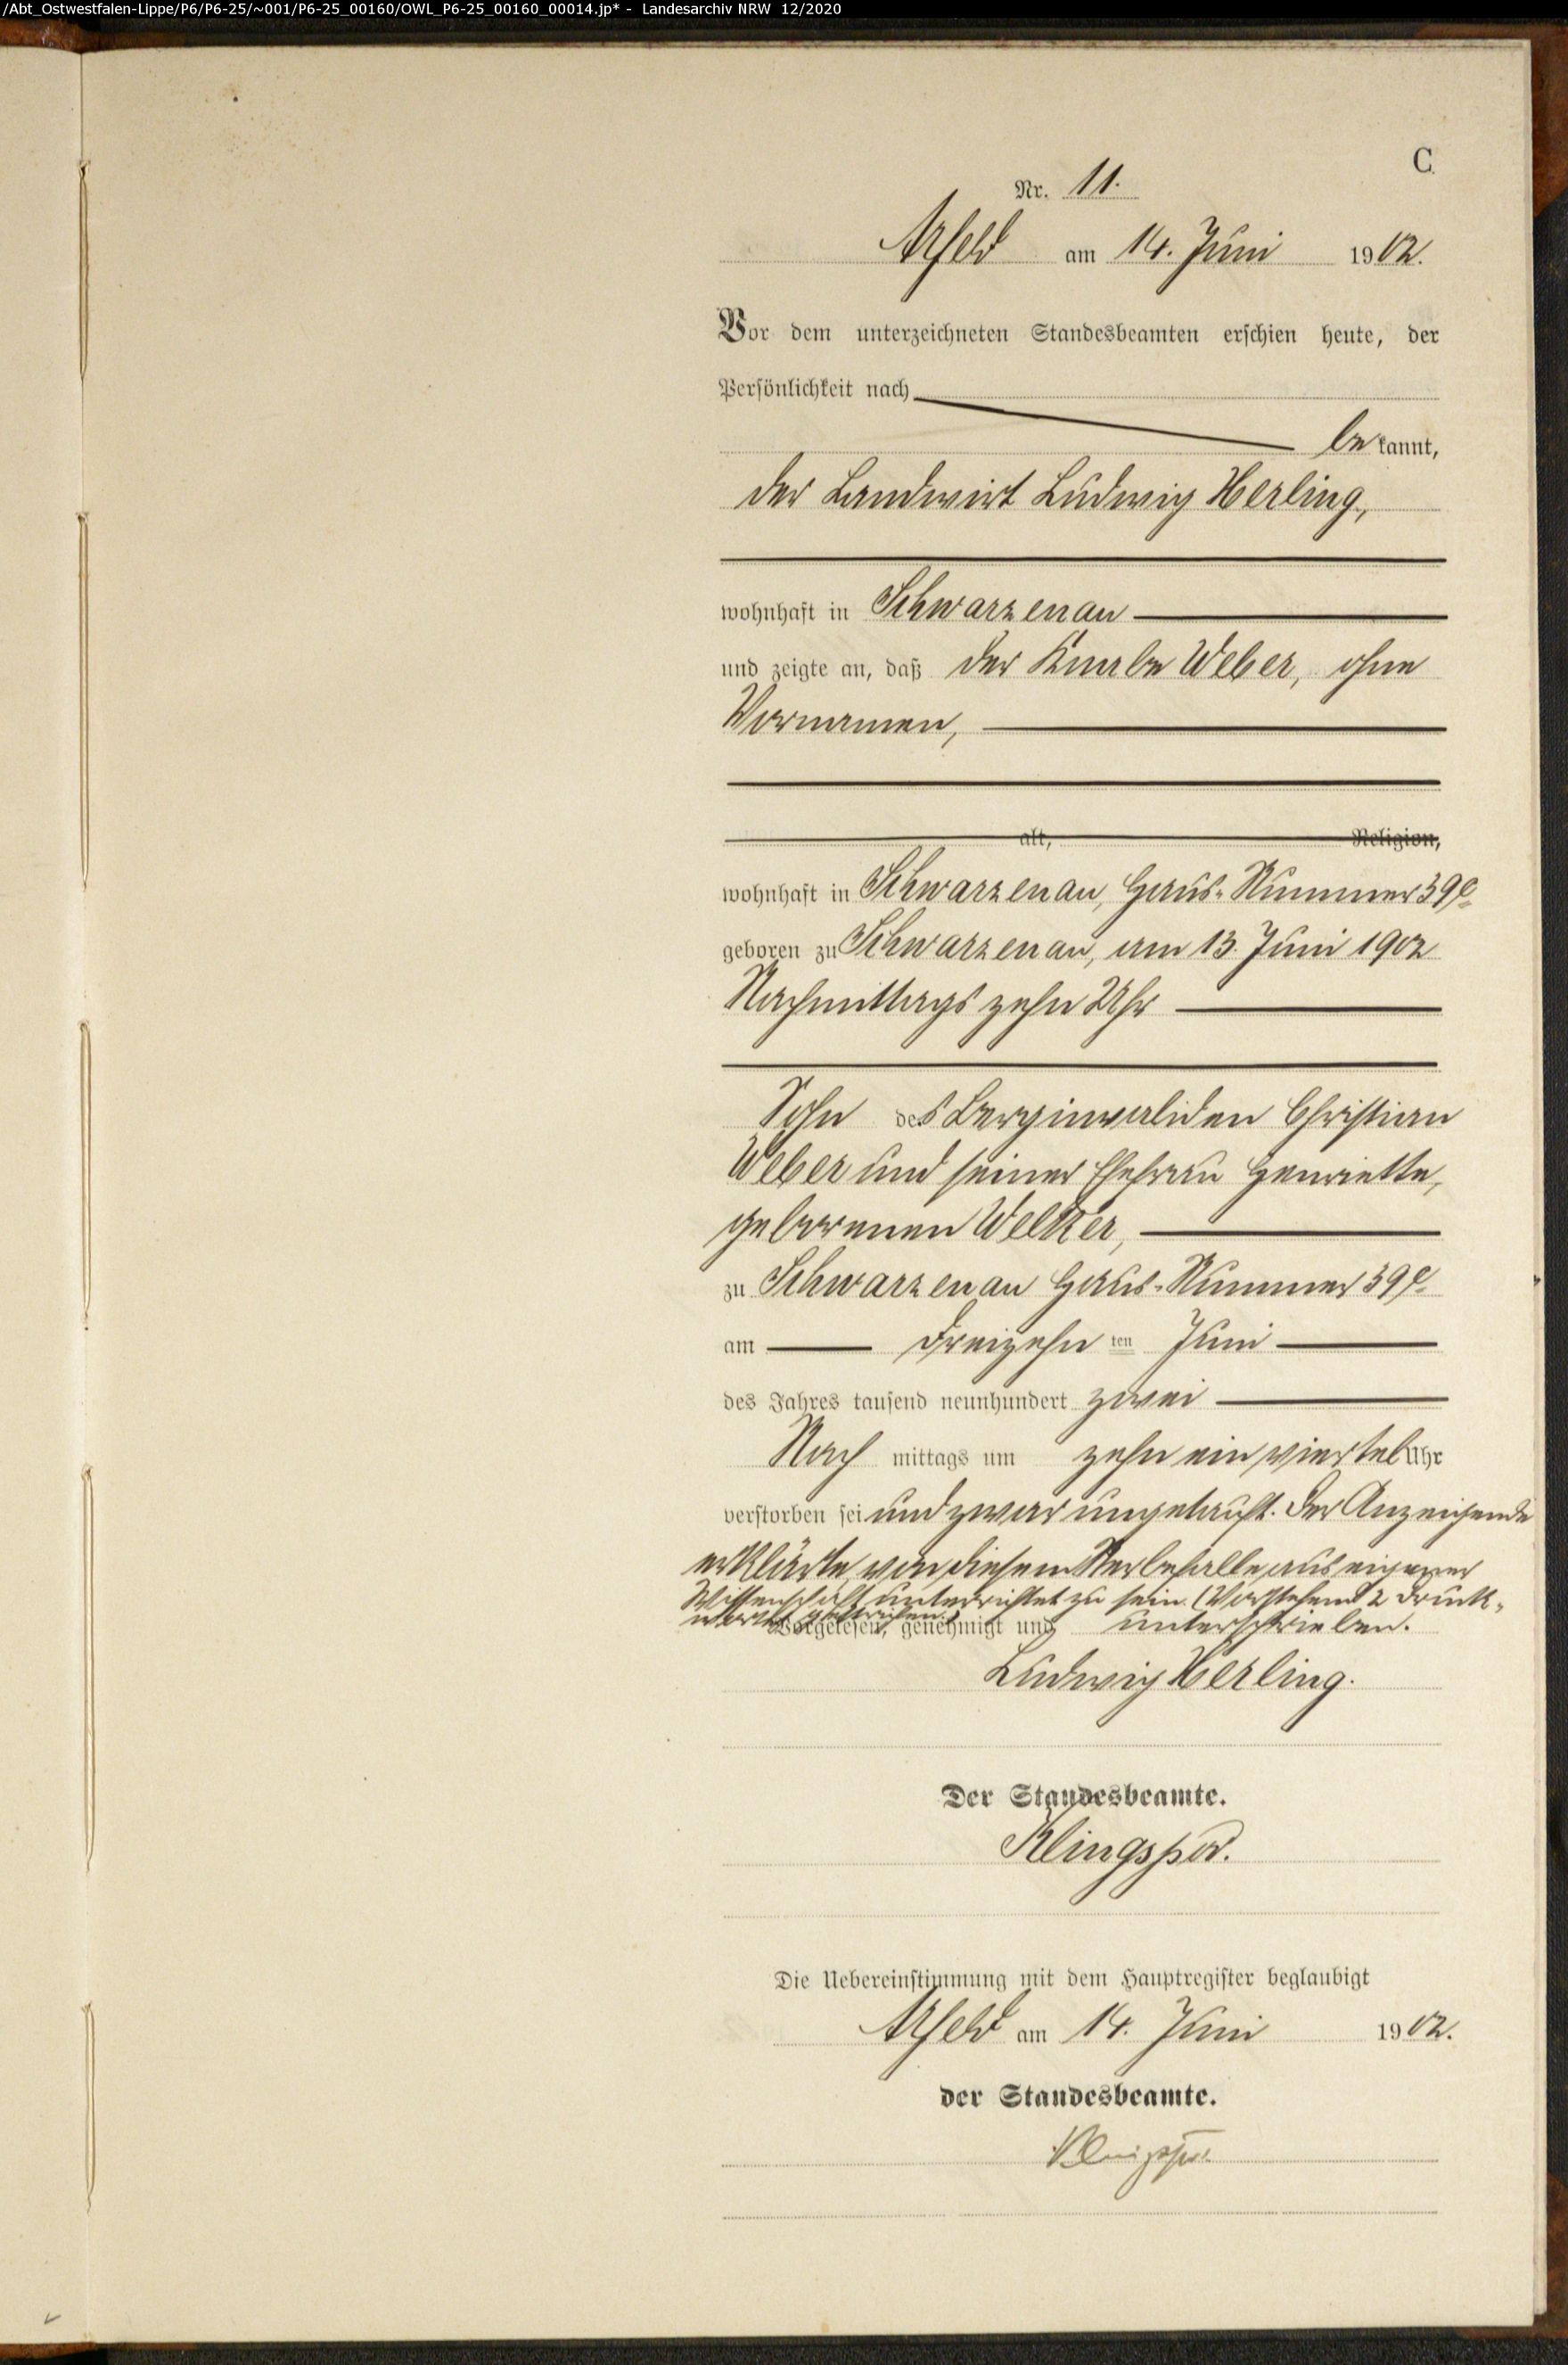 /Abt_Ostwestfalen-Lippe/P6/P6-25/~001/P6-25_00160/OWL_P6-25_00160_00014.jp* - Landesarchiv NRW 12/2020
C.
Nr. 11.
Arfeld am 14. Juni 1902.
Vor dem unterzeichneten Standesbeamten erschien heute, der
Persönlichkeit nach
bekannt,
der Landwirt Ludwig Herling,
wohnhaft in Schwarzenau
und zeigte an, daß der Knabe Weber, ohne
Vornamen,
alt, Religion,
wohnhaft in Schwarzenau, Haus-Nummer 39e
geboren zu Schwarzenau, am 13. Juni 1902
Nachmittags zehn Uhr
Sohn des Berginvaliden Christian
Weber und seiner Ehefrau Henriette,
geborenen Welker,
zu Schwarzenau Haus-Nummer 39e
am dreizehn ten Juni
des Jahres tausend neunhundert zwei
Nach mittags um zehn ein viertel Uhr
verstorben sei und zwar ungetauft. Der Anzeigende
erklärte, von diesem Sterbefalle aus eigener
Wissenschaft unterrichtet zu sein. (Vorstehend 2 Druck-
worte gestrichen.)
Vorgelesen, genehmigt und unterschrieben.
Ludwig Herling.
Der Standesbeamte.
Klingspor.
Die Uebereinstimmung mit dem Hauptregister beglaubigt
Arfeld am 14. Juni 1902.
der Standesbeamte.
Klingspor.